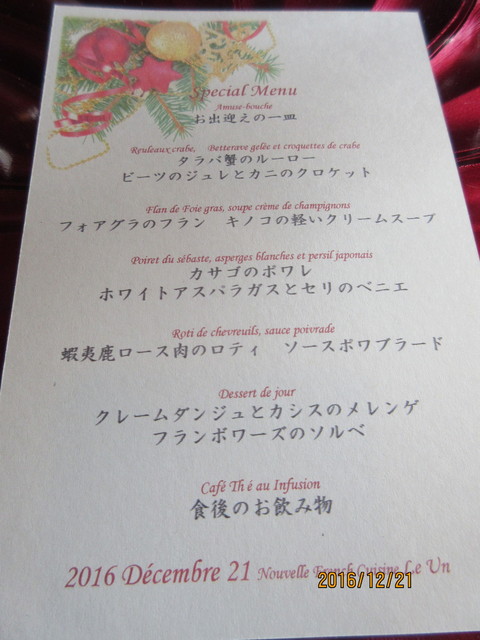 Special Menu
Amuse-bouche
お出迎えの一皿
Reuleaux crabe, Betterave gelée et croquettes de crabe
タラバ蟹のルーロー
ビーツのジュレとカニのクロケット
Flan de Foie gras, soupe crème de champignons
フォアグラのフラン キノコの軽いクリームスープ
Poiret du sébaste, asperges blanches et persil japonais
カサゴのポワレ
ホワイトアスパラガスとセリのベニエ
Roti de chevreuils, sauce poivrade
蝦夷鹿ロース肉のロティ ソースポワブラード
Dessert de jour
クレームダンジュとカシスのメレンゲ
フランボワーズのソルベ
Café Thé au Infusion
食後のお飲み物
2016 Décembre 21 Nouvelle French Cuisine Le Un
2016/12/21